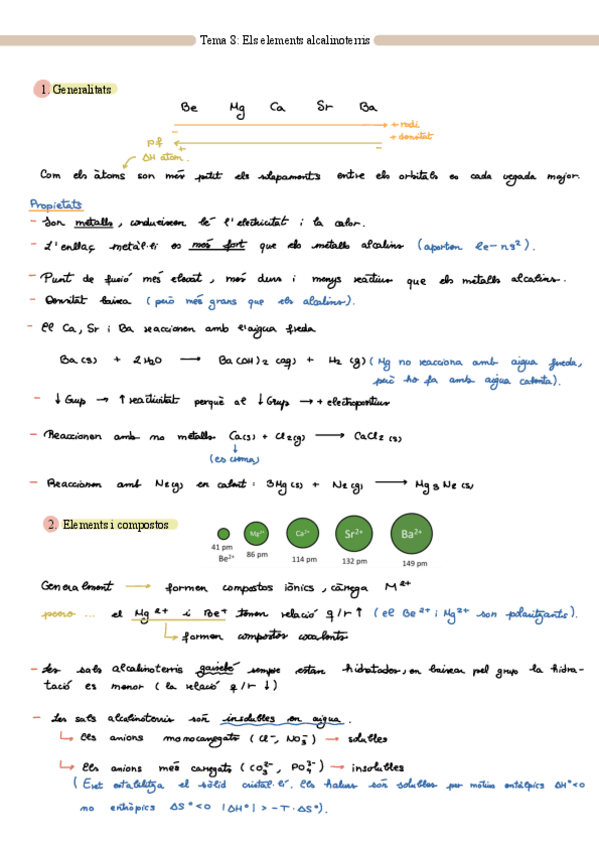 Tema 8: Els elements alcalinoterris
1. Generalitats
Be Mg Ca Sr Ba
+ radi
+ densitat
Pf
ΔH atom.
Com els àtoms son més petit els solapaments entre els orbitals es cada vegada major.
Propietats
- Son metalls, condueixen bé l'electricitat i la calor.
- L'enllaç metàl·lic es més fort que els metalls alcalins (aporten 2e- ns²).
- Punt de fusió més elevat, més durs i menys reactius que els metalls alcalins.
- Densitat baixa (però més grans que els alcalins).
- El Ca, Sr i Ba reaccionen amb l'aigua freda
Ba (s) + 2H2O → Ba(OH)2 (aq) + H2 (g) (Mg no reacciona amb aigua freda,
però ho fa amb aigua calenta).
- ↓ Grup → ↑ reactivitat perquè al ↓ Grup → + electropositius
- Reaccionen amb no metalls Ca(s) + Cl2(g) → CaCl2 (s)
(es crema)
- Reaccionen amb N2(g) en calent: 3Mg(s) + N2(g) → Mg3N2(s)
2. Elements i compostos
Mg2+ Ca2+ Sr2+ Ba2+
41 pm 86 pm 114 pm 132 pm 149 pm
Be2+
Generalment → formen compostos iònics, càrrega M2+
pero ... el Mg2+ i Be+ tenen relació q/r ↑ (el Be2+ i Mg2+ son polaritzants).
formen compostos covalents
- Les sals alcalinoterris gairebé sempre estan hidratades, en baixar pel grup la hidra-
tació es menor (la relació q/r ↓)
- Les sals alcalinoterris són insolubles en aigua.
Els anions monocarregats (Cl-, NO3-) → solubles
Els anions més carregats (CO3 2-, PO4 3-) → insolubles
(Exet estabilitza el sòlid cristal·lí. Els halurs són solubles per motius entàlpics ΔH°<0
no entròpics ΔS°<0 |ΔH°| > -T·ΔS°).